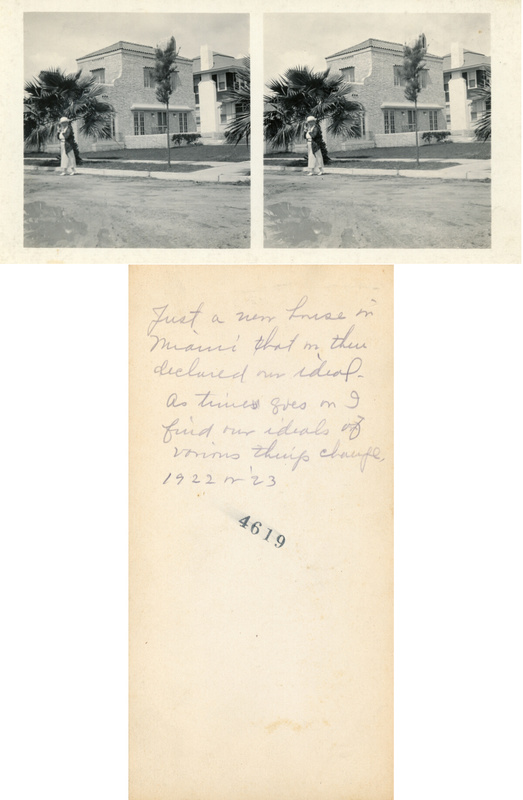 Just a new house in
Miami that we then
declared our ideal.
As times goes on I
find our ideals of
various things change.
1922 or '23
4619